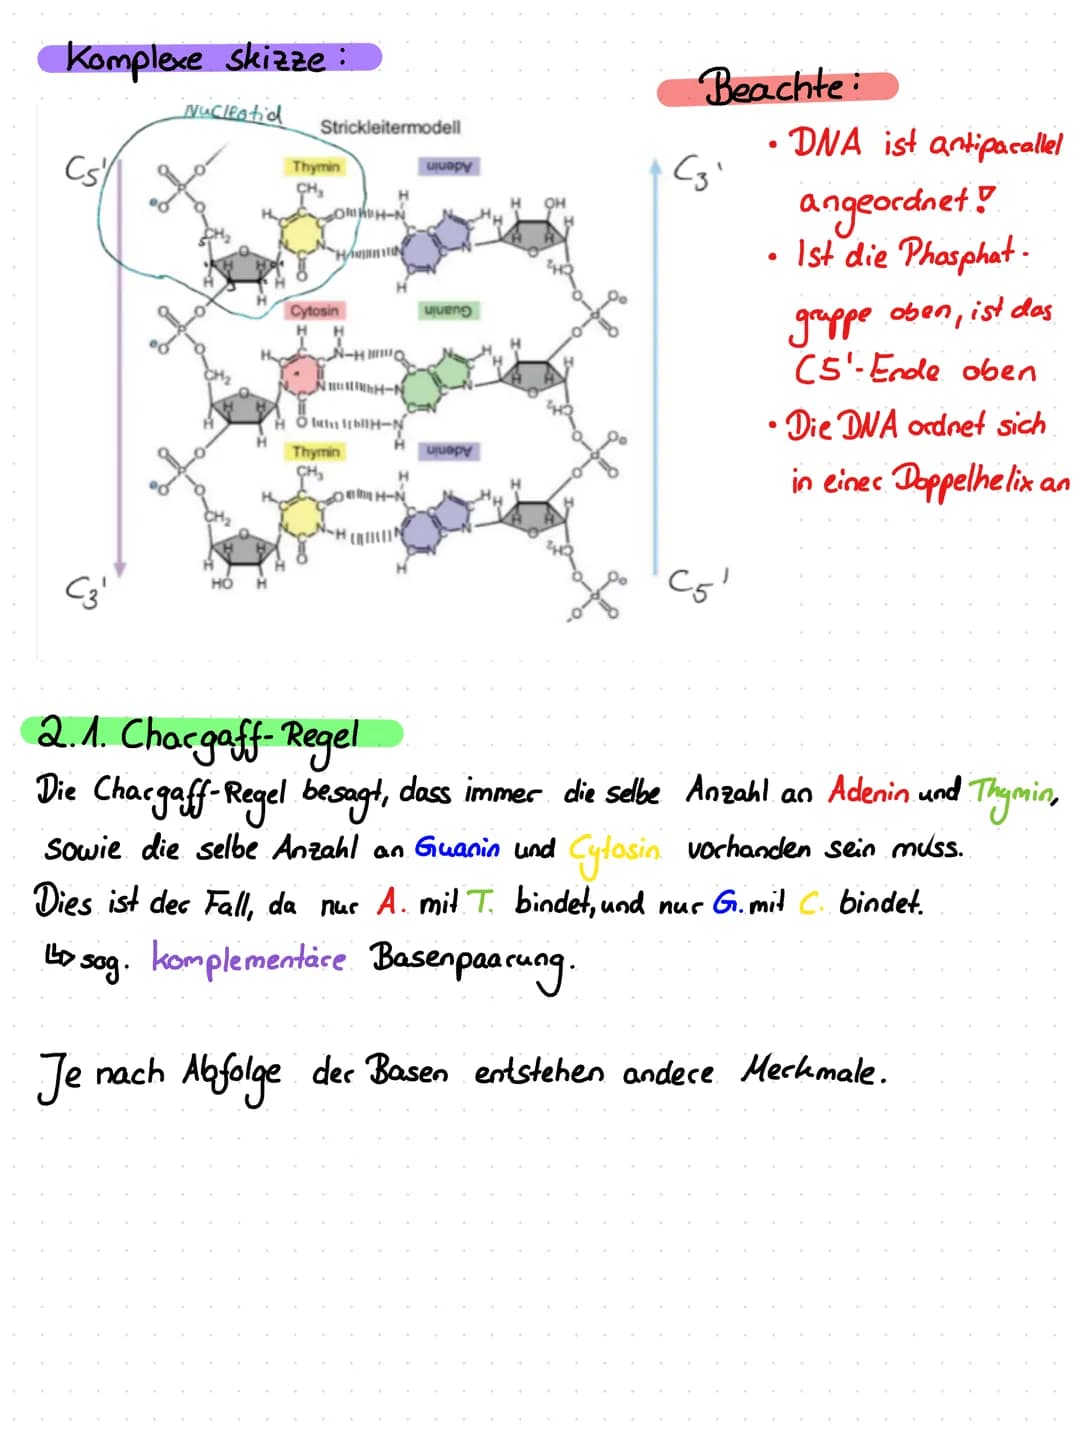 Komplexe skizze:
Beachte:
Nucleotid
Strickleitermodell
C5'
C3'
Thymin
Adenin
Cytosin
Guanin
Thymin
Adenin
C3'
C5'
• DNA ist antiparallel
angeordnet!
• Ist die Phosphat-
gruppe oben, ist das
C5'-Ende oben
• Die DNA ordnet sich
in einer Doppelhelix an
2.1. Chargaff-Regel
Die Chargaff-Regel besagt, dass immer die selbe Anzahl an Adenin und Thymin,
sowie die selbe Anzahl an Guanin und Cytosin vorhanden sein muss.
Dies ist der Fall, da nur A. mit T. bindet, und nur G. mit C. bindet.
↳ sog. komplementäre Basenpaarung.
Je nach Abfolge der Basen entstehen andere Merkmale.